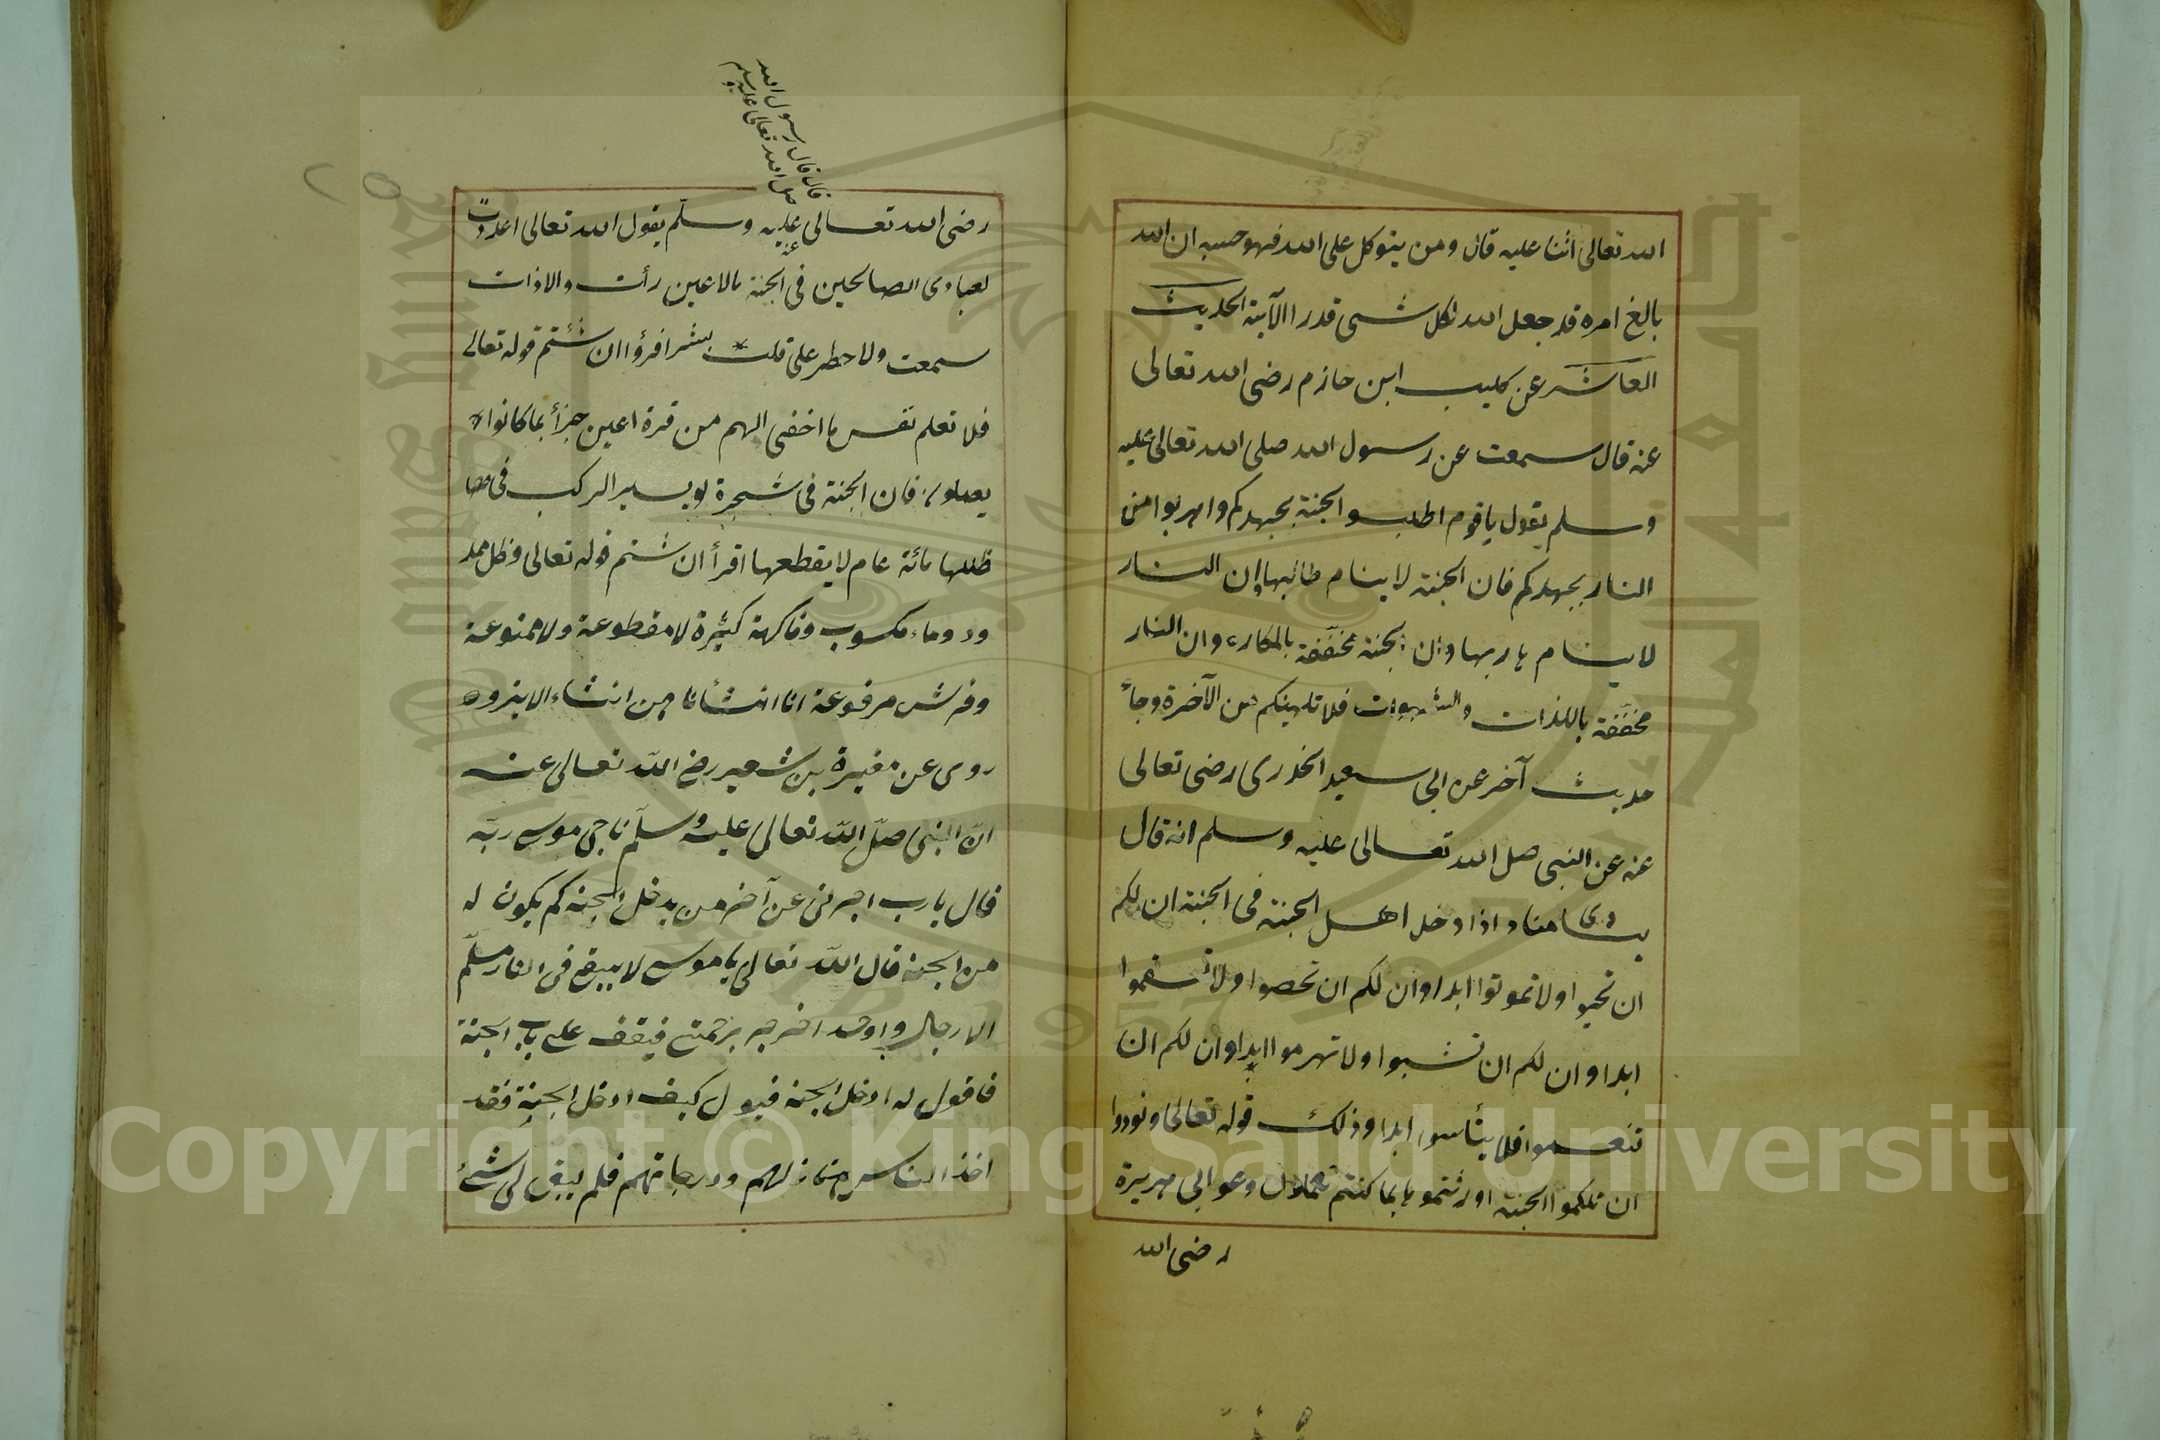 الله تعالى اثنا عليه قال ومن يتوكل على الله فهو حسبه ان الله
بالغ امره قد جعل الله لكل شىء قدرا الآية الحديث
العاشر عن كليب ابن حازم رضى الله تعالى
عنه قال سمعت عن رسول الله صلى الله تعالى عليه
وسلم يقول يا قوم اطلبو الجنة بجهدكم واهربوا من
النار بجهدكم فان الجنة لا ينام طالبها وان النار
لا ينام هاربها وان الجنة مخففة بالمكاره وان النار
مخففة باللذات والشهوات فلا تلهينكم عن الآخرة وجاء
حديث آخر عن ابى سعيد الخدرى رضى تعالى
عنه عن النبى صل الله تعالى عليه وسلم انه قال
ينادى مناد اذا دخل اهل الجنة فى الجنة ان لكم
ان تحيوا ولا تموتوا ابدا وان لكم ان تصحوا ولا تسقموا
ابدا وان لكم ان تشبوا ولا تهرموا ابدا وان لكم ان
تنعموا فلا يئأسوا ابدا وذلك قوله تعالى ونودوا
ان تلكموا الجنة اورثتموها بما كنتم تعملون وعن ابى هريرة
رضى الله
قال قال رسول الله
صلى الله تعالى عليه وسلم
رضى الله تعالى عليه وسلّم يقول الله تعالى اعددت
عنه
لعبادى الصالحين فى الجنة مالا عين رأت ولا اذات
سمعت ولا خطر على قلب بشر افرؤا ان شئتم قوله تعالى
فلا تعلم نفس ما اخفى الهم من قرة اعين جزأ بما كانوا
يعملون فان الجنة فى شجرة لو يسير الركب فى
ظللها مائة عام لا يقطعها اقرأ ان شئتم قوله تعالى وظل ممد
ود وماء مكسوب وفاكهة كثيرة لا مقطوعة ولا ممنوعة
وفرش مرفوعة انا انشأنا هن انشاء الاية
روى عن مغيرة بن شعير رضى الله تعالى عنه
انّ النبى صلّى الله تعالى عليه وسلّم ناجى موسى ربّه
فقال يا رب اخبرنى عن آخر من يدخل الجنة كم يكون له
من الجنة قال الله تعالى يا موسى لا يبقى فى النار مسلّم
الا رجل واحد اخرجه برحمتى فيقف على باب الجنة
فاقول له ادخل الجنة فيقول كيف ادخل الجنة فقد
اخذ الناس منازلهم ودرجاتهم فلم يبقى لى شئ
Copyright © King Saud University